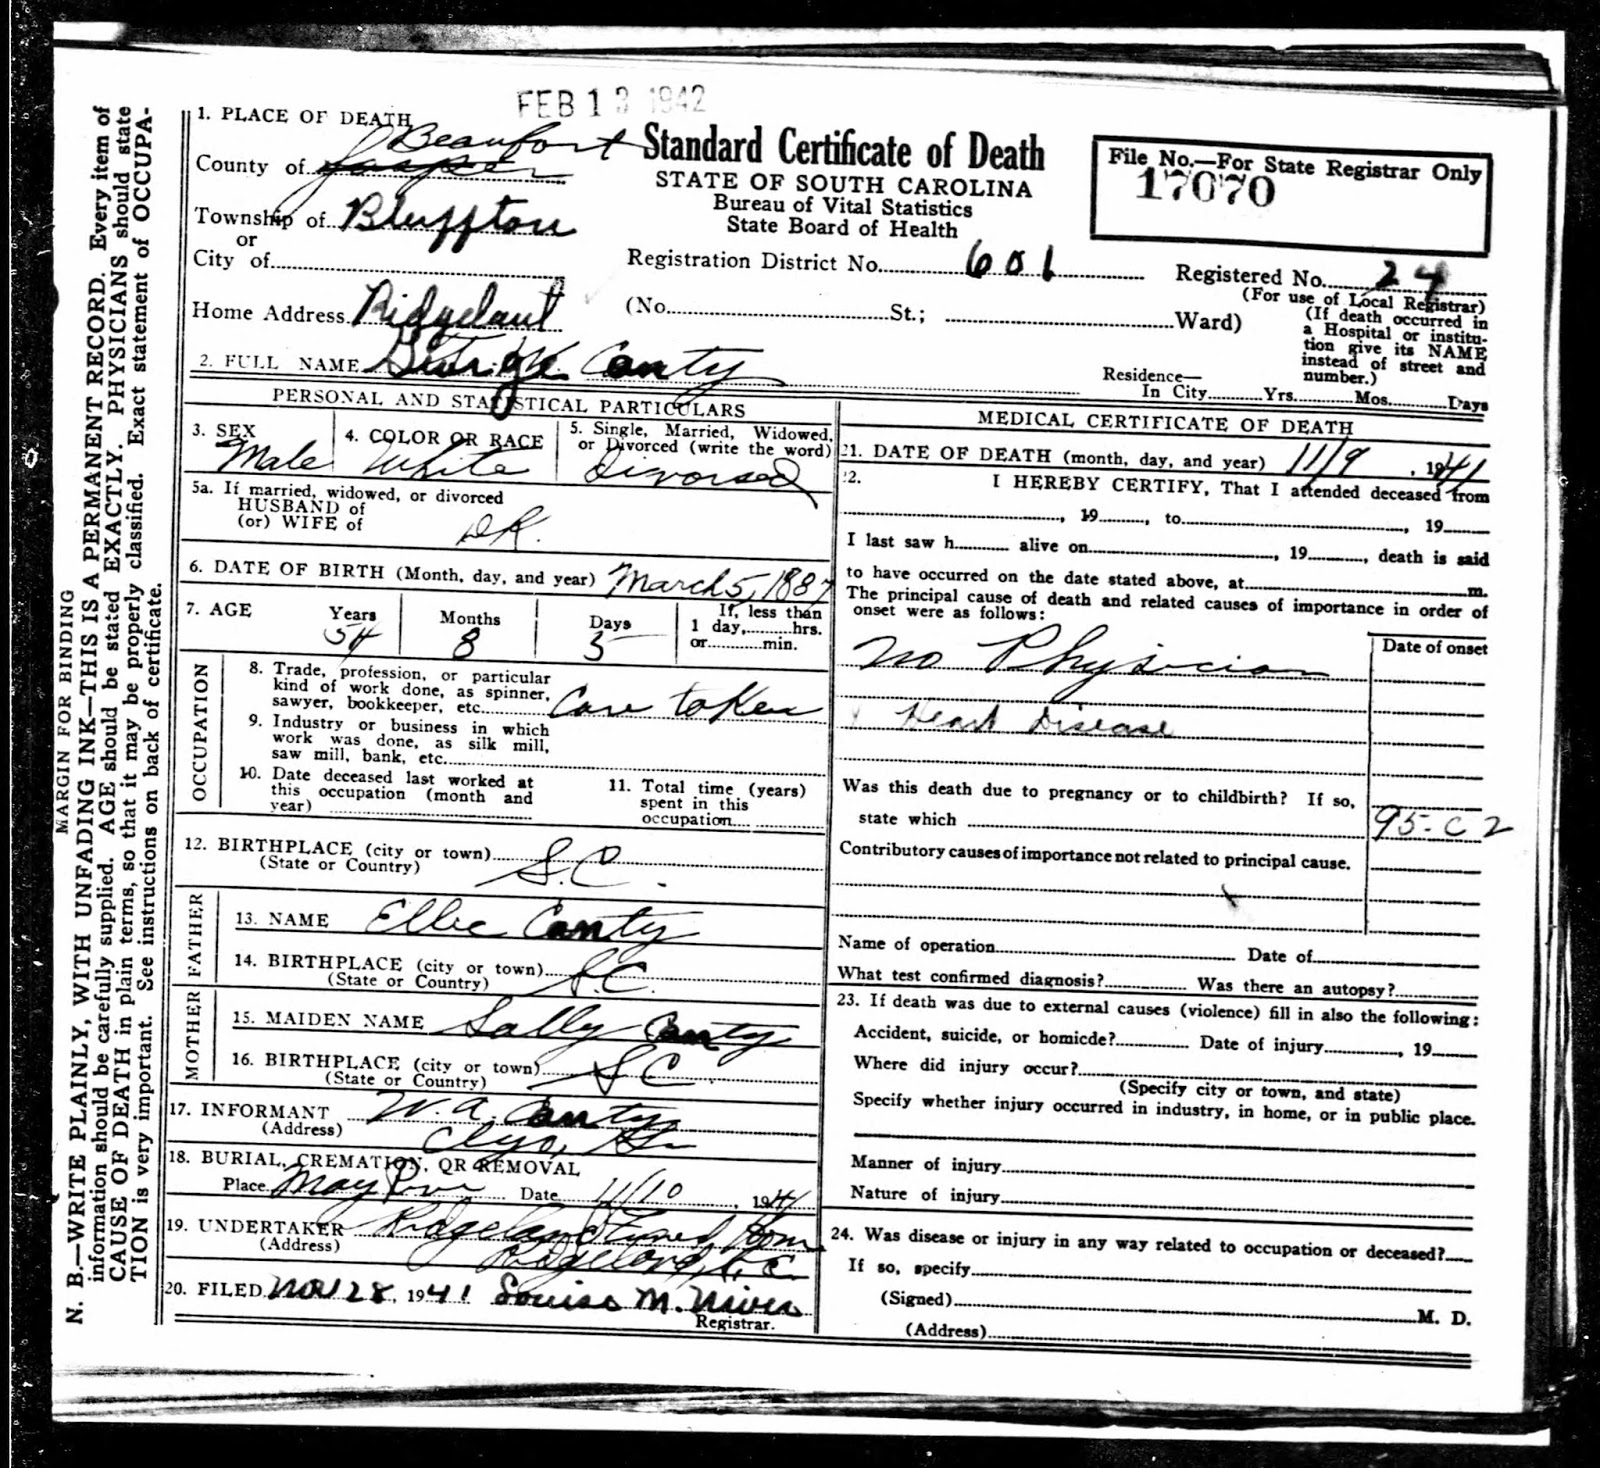 FEB 13 1942
1. PLACE OF DEATH
Beaufort
County of Jasper
Township of Bluffton
or
City of
Home Address Ridgeland
2. FULL NAME George Canty
Standard Certificate of Death
STATE OF SOUTH CAROLINA
Bureau of Vital Statistics
State Board of Health
File No.—For State Registrar Only
17070
Registration District No. 601
Registered No. 24
(For use of Local Registrar)
(No. St.; Ward)
(If death occurred in
a Hospital or institu-
tion give its NAME
instead of street and
number.)
Residence—
In City Yrs. Mos. Days
PERSONAL AND STATISTICAL PARTICULARS
3. SEX
Male
4. COLOR OR RACE
White
5. Single, Married, Widowed,
or Divorced (write the word)
Divorsed
5a. If married, widowed, or divorced
HUSBAND of
(or) WIFE of
D.K.
6. DATE OF BIRTH (Month, day, and year) March 5, 1887
7. AGE
Years
54
Months
8
Days
5
If less than
1 day, hrs.
or min.
OCCUPATION
8. Trade, profession, or particular
kind of work done, as spinner,
sawyer, bookkeeper, etc. Care taker
9. Industry or business in which
work was done, as silk mill,
saw mill, bank, etc.
10. Date deceased last worked at
this occupation (month and
year)
11. Total time (years)
spent in this
occupation
12. BIRTHPLACE (city or town)
(State or Country) S.C.
FATHER
13. NAME Ellic Canty
14. BIRTHPLACE (city or town)
(State or Country) S.C.
MOTHER
15. MAIDEN NAME Sally Canty
16. BIRTHPLACE (city or town)
(State or Country) S C
17. INFORMANT W. A. Canty
(Address) Clyo, Ga
18. BURIAL, CREMATION, OR REMOVAL
Place May River Date 11/10, 1941
19. UNDERTAKER Ridgeland Funeral Home
(Address) Ridgeland, S. C.
20. FILED Nov 28, 1941 Louise M. Niver
Registrar.
MEDICAL CERTIFICATE OF DEATH
21. DATE OF DEATH (month, day, and year) 11/9, 1941
22. I HEREBY CERTIFY, That I attended deceased from
, 19 , to , 19
I last saw h alive on , 19 , death is said
to have occurred on the date stated above, at m.
The principal cause of death and related causes of importance in order of
onset were as follows:
Date of onset
No Physician
Heart Disease
Was this death due to pregnancy or to childbirth? If so,
state which
95-C2
Contributory causes of importance not related to principal cause.
Name of operation Date of
What test confirmed diagnosis? Was there an autopsy?
23. If death was due to external causes (violence) fill in also the following:
Accident, suicide, or homicide? Date of injury , 19
Where did injury occur?
(Specify city or town, and state)
Specify whether injury occurred in industry, in home, or in public place.
Manner of injury
Nature of injury
24. Was disease or injury in any way related to occupation or deceased?
If so, specify
(Signed) M. D.
(Address)
MARGIN FOR BINDING
N. B.—WRITE PLAINLY, WITH UNFADING INK—THIS IS A PERMANENT RECORD. Every item of
information should be carefully supplied. AGE should be stated EXACTLY. PHYSICIANS should state
CAUSE OF DEATH in plain terms, so that it may be properly classified. Exact statement of OCCUPA-
TION is very important. See instructions on back of certificate.